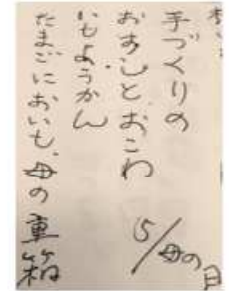 手づくりの
おすしとおこわ
いもようかん
たまごにおいも、母の重箱
5/母の日